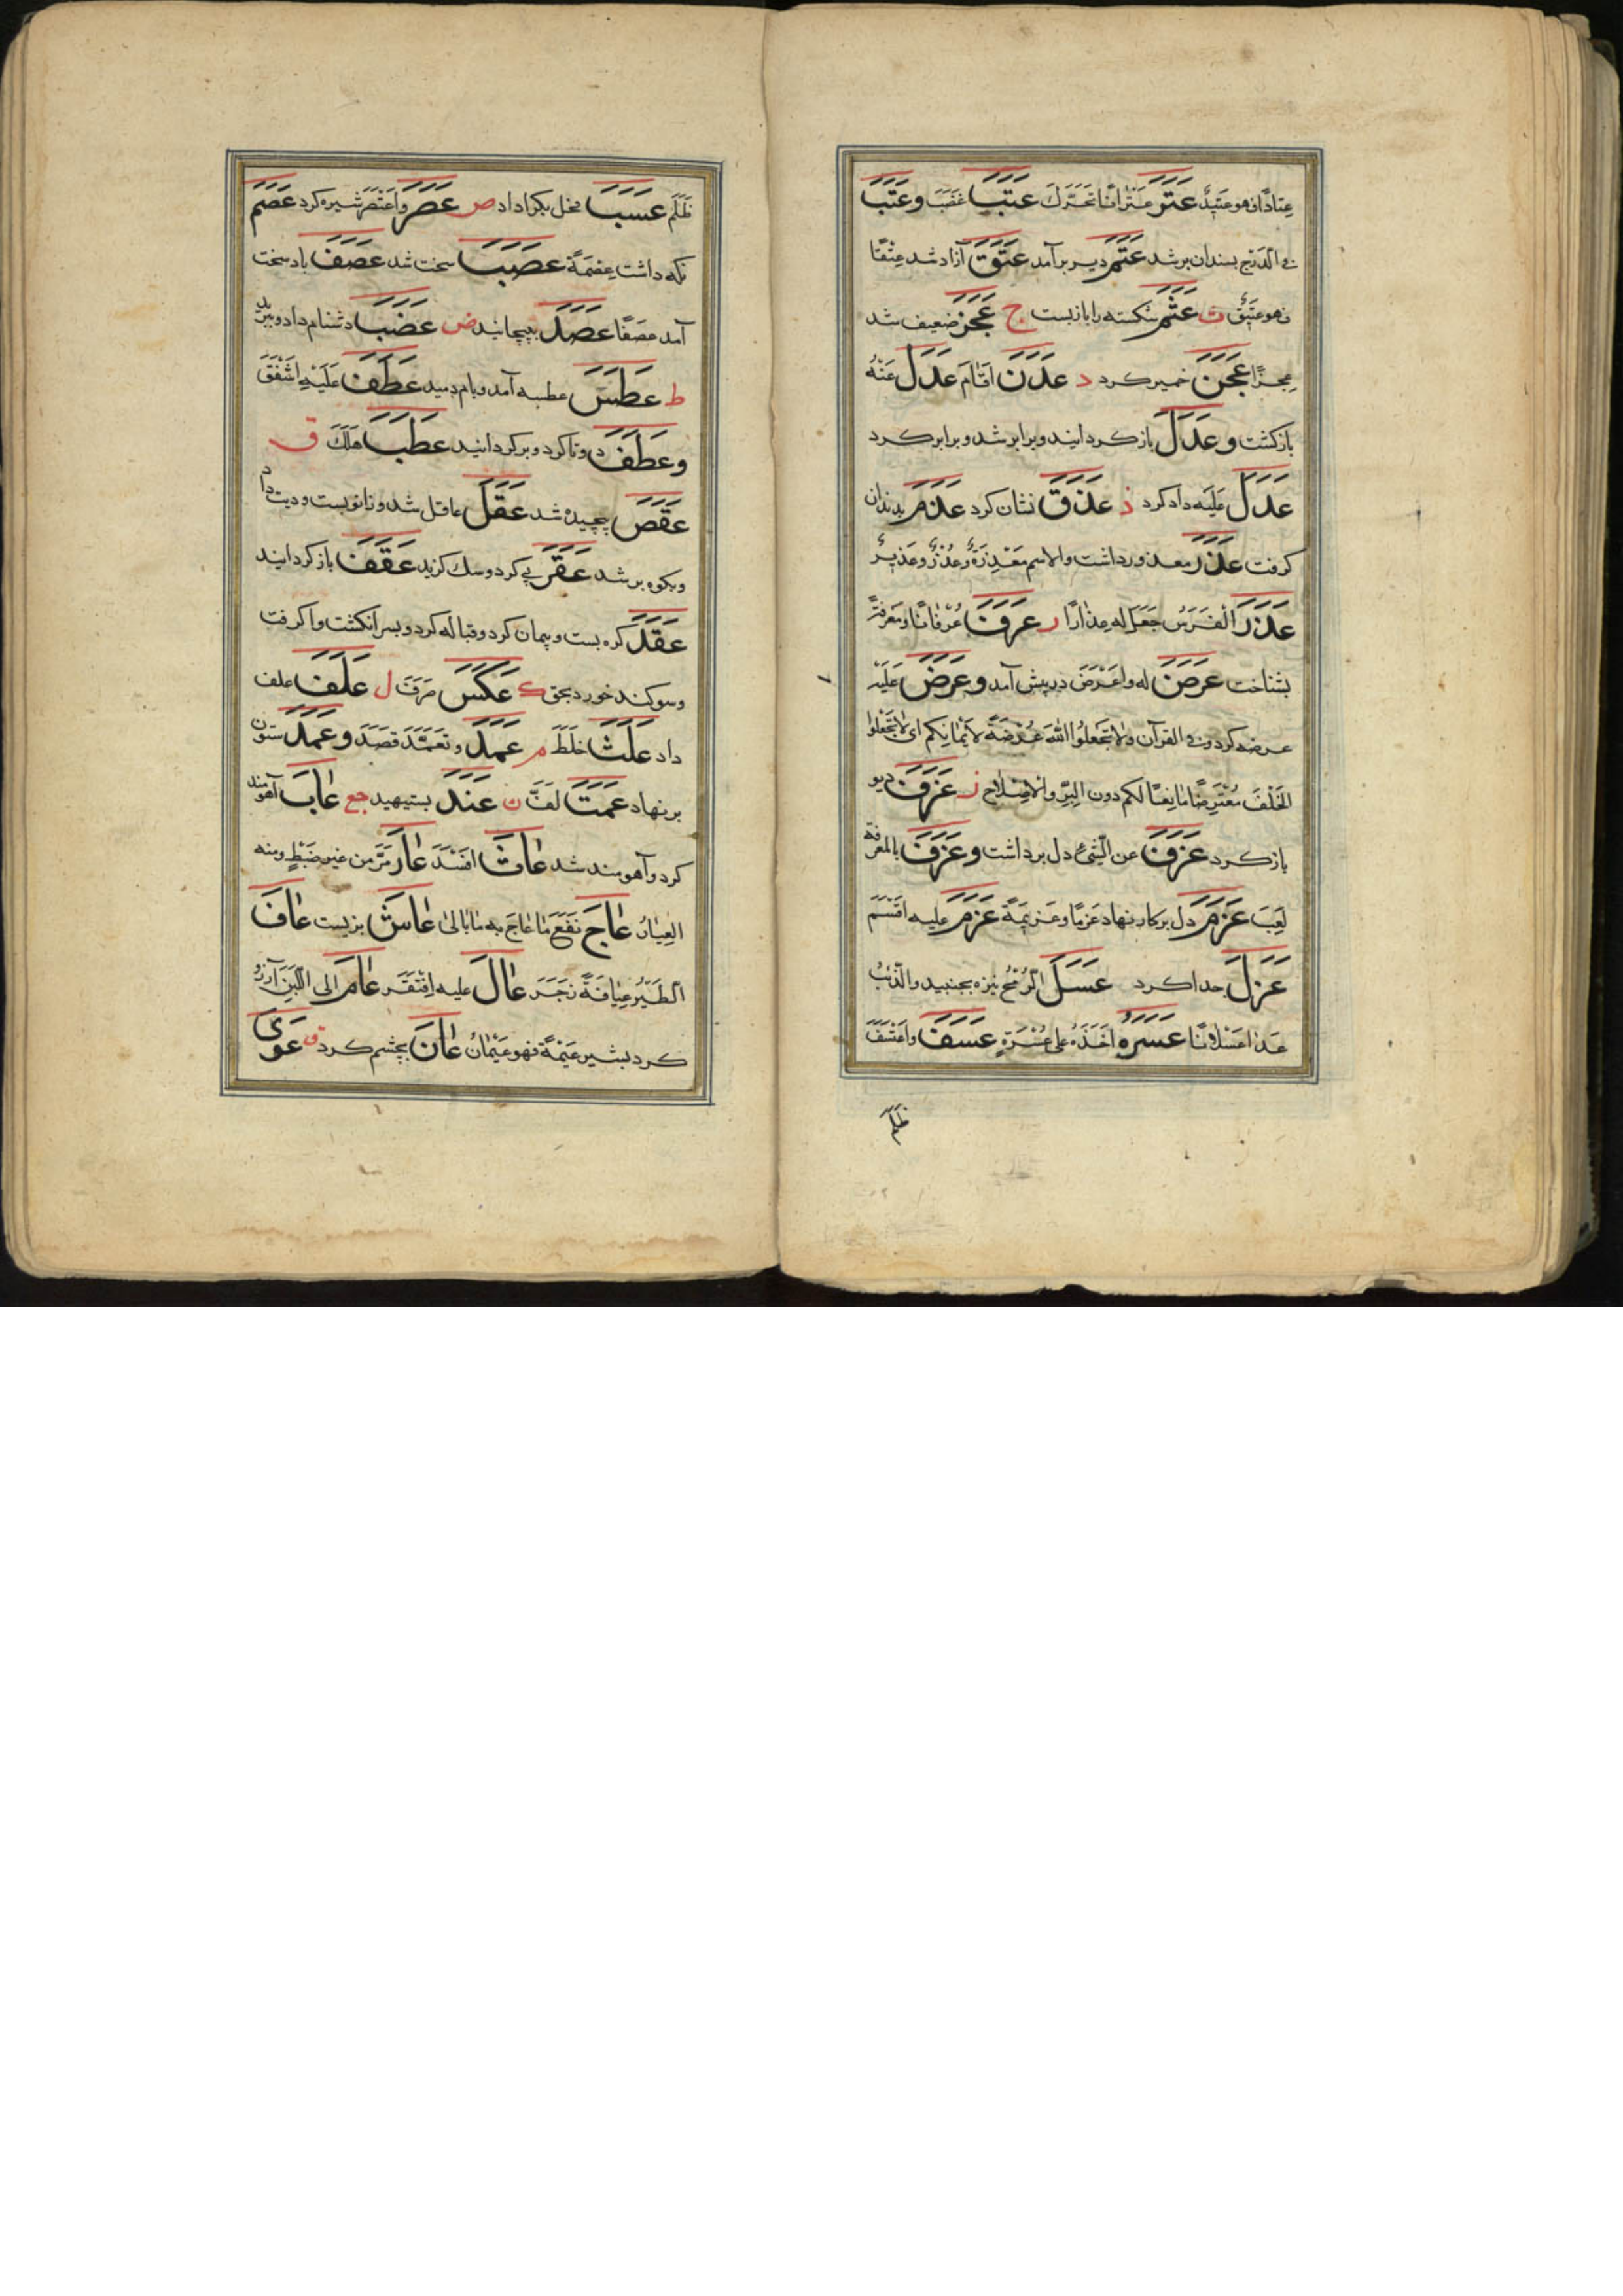 عتادًا فهو عتيدٌ عَتَرَ عترانًا تَحَرَّكَ عَتَبَ غَضَبَ وعَتَبَ
في الدرج بسندان بر شد عَتَمَ دير بر آمد عَتَقَ آزاد شد عِتْقًا
فهو عتيق ث عَثَمَ شكسته را بازبست ج عَجَزَ ضعيف شد
عجزًا عَجَنَ خمير كرد د عَدَنَ اَقَامَ عَدَلَ عَنْهُ
بازكشت وعَدَلَ بازكردانيد وبرابر شد وبرابر كرد
عَدَلَ عَلَيْه داد كرد ذ عَذَقَ نشان كرد عَذَمَ بدندان
كرفت عَذَرَ معذور داشت والاسم مَعْذِرَةٌ وعُذْرٌ وعَذيرٌ
عَذَرَ الْفَرَسَ جَعَلَ له عِذَارًا ر عَرَفَ عُرْفَانًا ومَعْرِفَةً
بشناخت عَرَضَ له واعرض در پيش آمد وعَرَضَ عَلَيْه
عرضه كردن وفي القرآن ولا تجعلوا الله عُرْضَةً لأيمانكم اى لا تجعلوا
الْحَلْفَ مُعْتَرِضًا مانِعًا لكم دون البِرِّ والاصلاح ز عَزَفَ ديو
باز كرد عَزَفَ عن الشَّيْءِ دل برداشت وعَزَفَ بالمعزفة
لَعِبَ عَزَمَ دل بر كار نهاد عَزْمًا وعَزيمَةً عَزَمَ عليه اَقْسَمَ
عَزَلَ جدا كرد عَسَلَ الرُّمْحُ نيزه بجنبيد والذِّئْبُ
عَدَا عَسَلَانًا عَسَرَهُ اَخَذَهُ على عُسْرَةٍ عَسَفَ واعْتَسَفَ
ظَلَمَ
ظَلَمَ عَسَبَ فحل بكرا داد ص عَصَرَ واعْتَصَرَ شيره كرد عَصَمَ
نكه داشت عِصْمَةً عَصَبَ سخت شد عَصَفَ باد سخت
آمد عصفًا عَصَدَ بپيچانيد ض عَضَبَ دشنام داد وببريد
ط عَطَسَ عطسه آمد وبام دميد عَطَفَ عَلَيْهِ اَشْفَقَ
وعَطَفَ دوتا كرد وبركردانيد عَطَبَ هَلَكَ ق
عَقَصَ پيچيده شد عَقَلَ عاقل شد وزانو بست وديت داد
وبكوه بر شد عَقَرَ پى كرد وسك كزيد عَقَفَ باز كردانيد
عَقَدَ كره بست وپيمان كرد وقباله كرد وبسر انكشت وا كرفت
وسوكند خورد بحق ك عَكَسَ صَرَفَ ل عَلَفَ علف
داد عَلَثَ خَلَطَ م عَمَدَ وتعَمَّدَ قصَدَ وعَمَدَ ستون
بر نهاد عَمَتَ لَفَّ ن عَنَدَ بستيهيد جع عَابَ آهومند
كرد وآهومند شد عَاثَ اَفْسَدَ عَارَ مَرَّ من غير ضَبْطٍ ومنه
العِيَارُ عَاجَ نَفَعَ مَا عَاجَ به ما بَالَى عَاشَ بزيست عَافَ
الطَّيْرُ عِيَافَةً زَجَرَ عَالَ عليه افْتَقَرَ عَامَ الى اللَّبَنِ آرزو
كرد بشير عَيْمَةً فهو عَيْمَانُ عَانَ بچشم كرد ق عَوَى